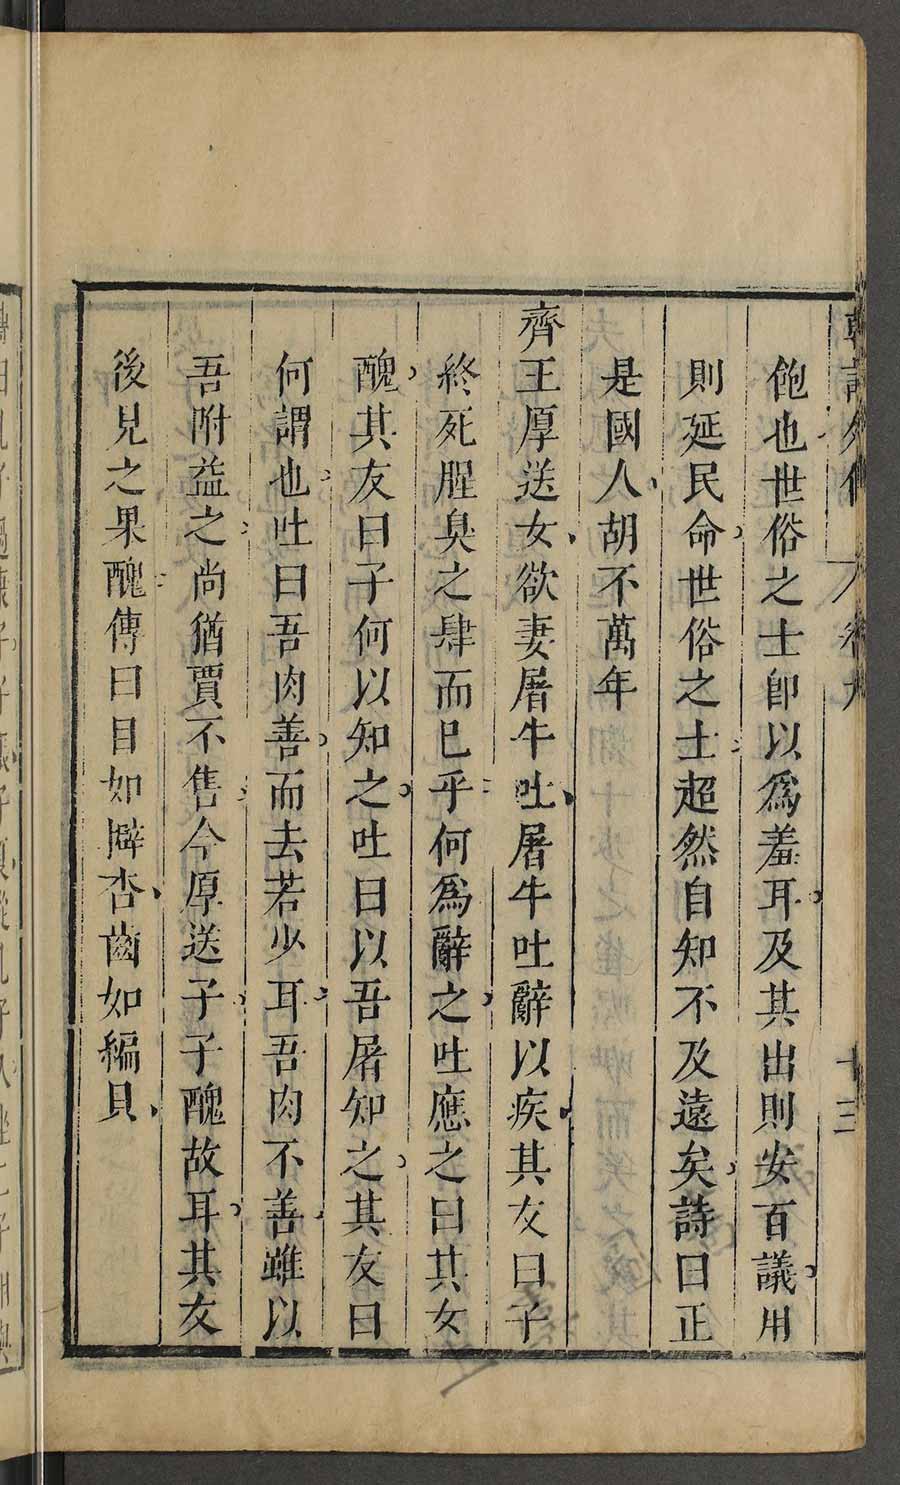 韓詩外傳 卷九 十三
飽也世俗之士卽以爲羞耳及其出則安百議用
則延民命世俗之士超然自知不及遠矣詩曰正
是國人胡不萬年
齊王厚送女欲妻屠牛吐屠牛吐辭以疾其友曰子
終死腥臭之肆而已乎何爲辭之吐應之曰其女
醜其友曰子何以知之吐曰以吾屠知之其友曰
何謂也吐曰吾肉善而去若少耳吾肉不善雖以
吾附益之尚猶賈不售今厚送子子醜故耳其友
後見之果醜傳曰目如擗杏齒如編貝